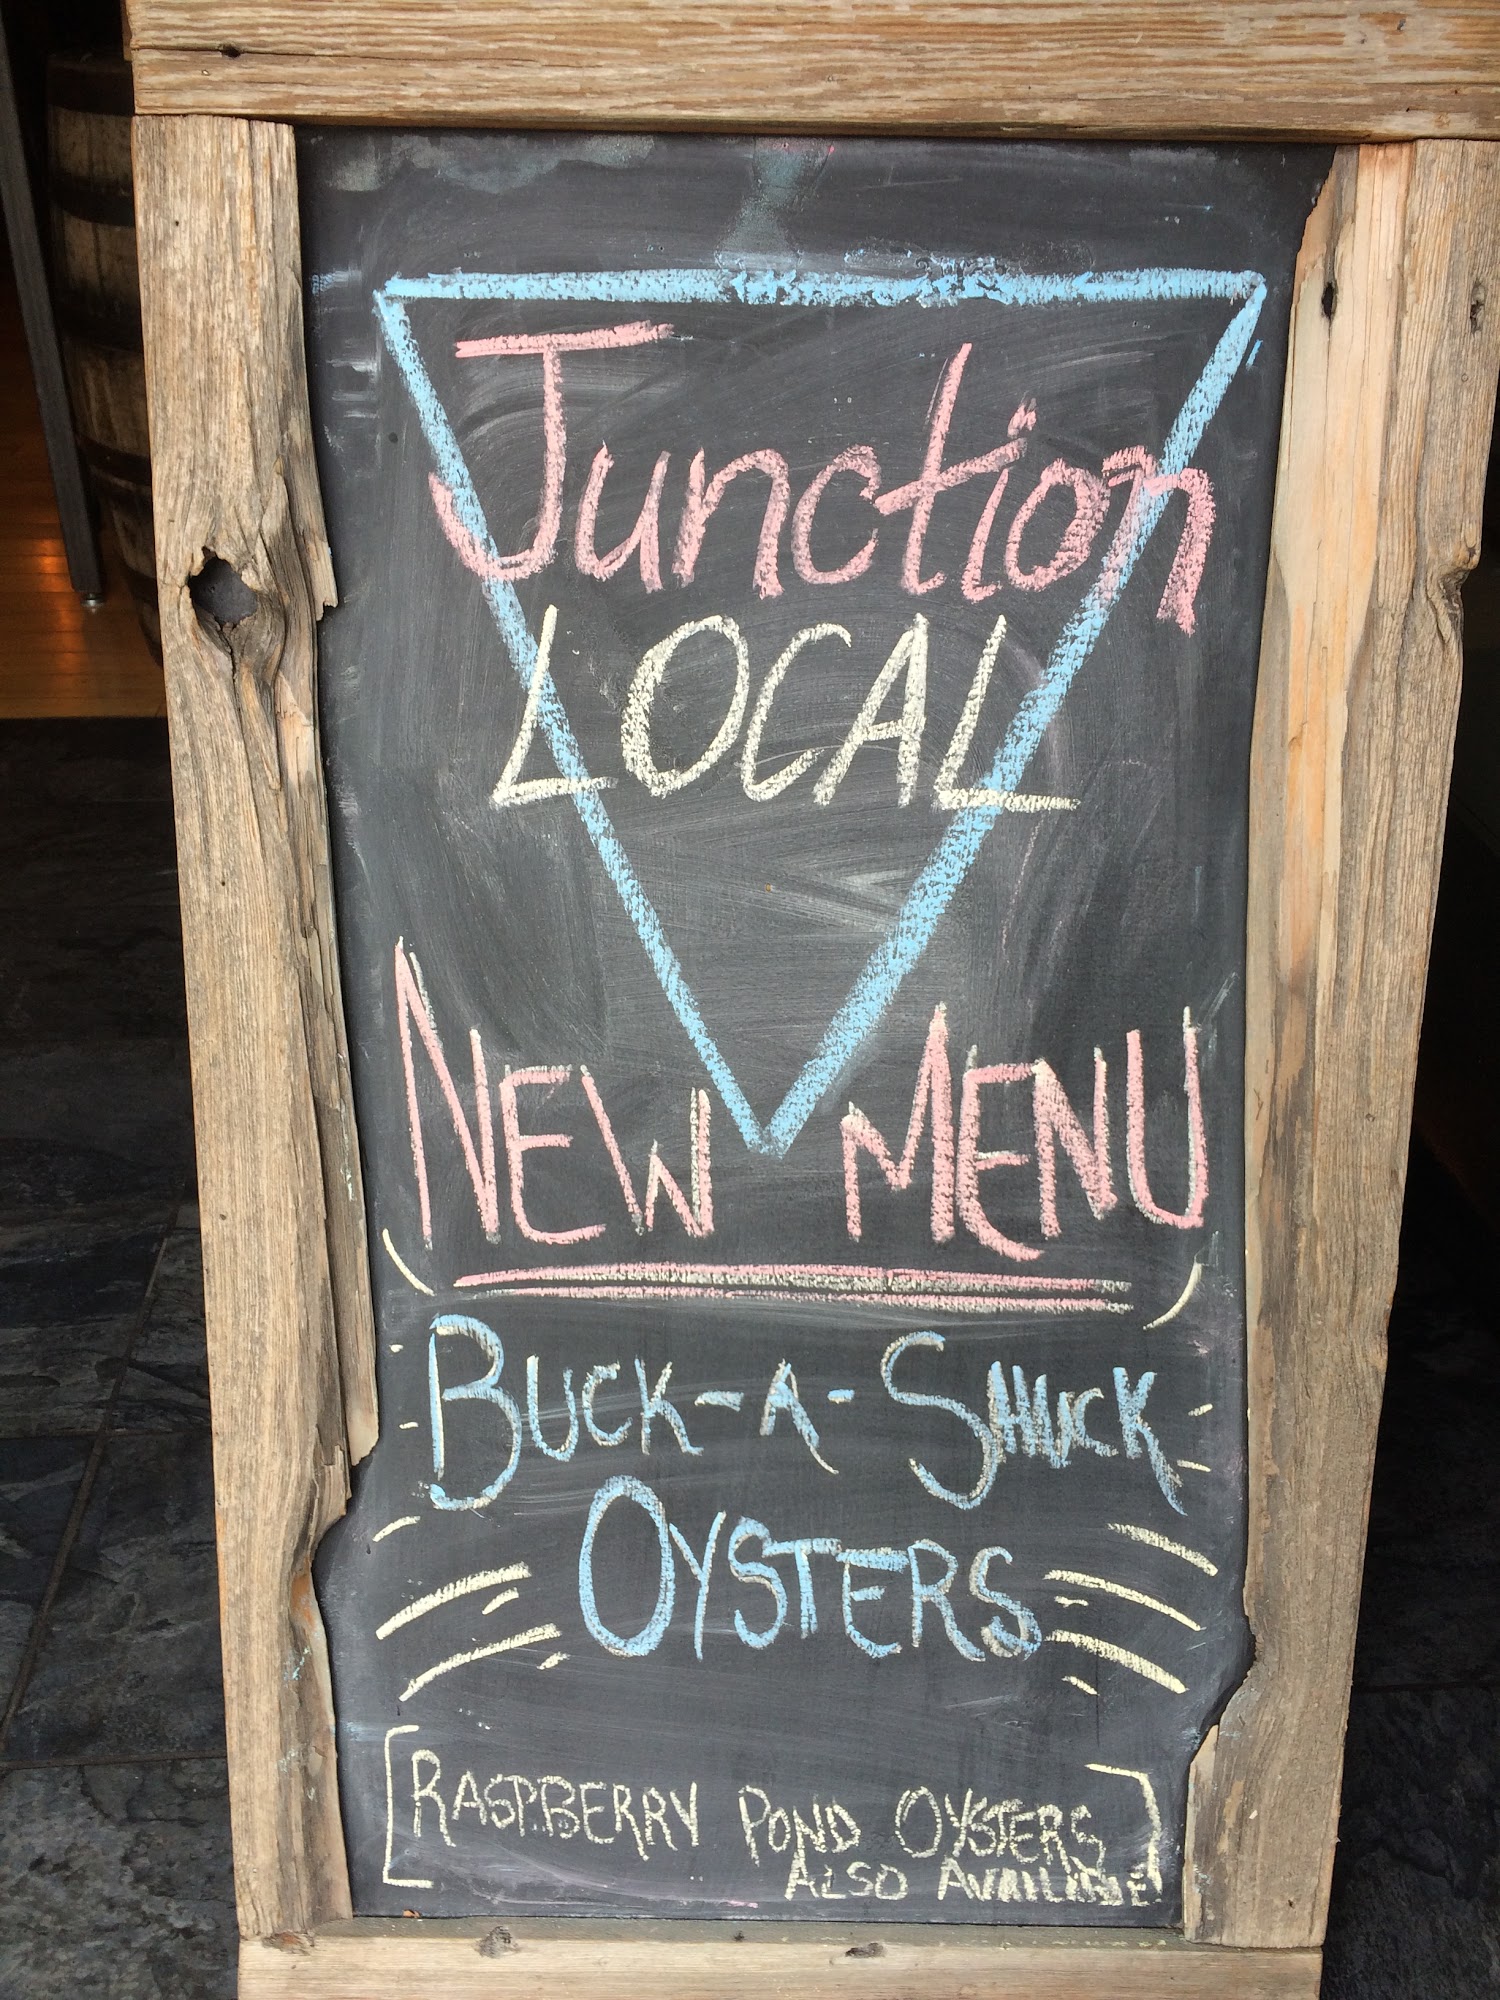 Junction
LOCAL
NEW MENU
BUCK-A-SHUCK
OYSTERS
[RASPBERRY POND OYSTERS
ALSO AVAILABLE]